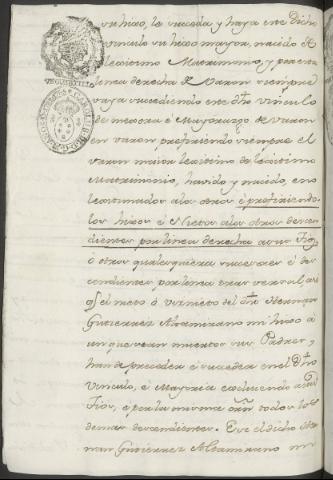 su hixo, le suceda y haya este Dicho
vinculo su hixo mayor, nacido de
Lexitimo Matrimonio, y por esta
linea derecha de Varon siempre
vaya sucediendo este dho vinculo
de mexora é Mayorazgo de Varon
en varon prefiriendo siempre el
varon maior lexitimo de lexitimo
Matrimonio, havido y nacido, eno
lexitimado a los otros é prefiriendo
los hixos é Nietos a los otros desce
dientes por linea derecha a sus Tios
ó otros qualesquiera suscesores é des
cendientes por linea trasversal as
os el nieto ó visnieto del dho Herman
Gutierrez Altamirano mi hixo á
unque sean muertos sus Padres,
han de preceder é suceder en el dho
Vinculo, é Mayoria excluiendo a sus
Tios, é por la misma orñ todos los
demas descendientes. Es el dicho Her
nan Gutierrez Altamirano mi